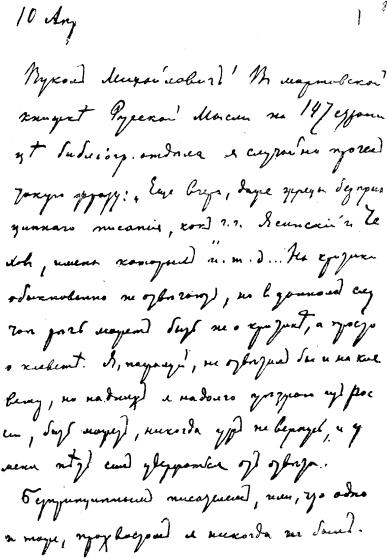 10 Апр
Вуколъ Михайловичъ! Въ мартовской
книжкѣ Русской Мысли на 147 страни
цѣ библіогр. отдѣла я случайно прочелъ
такую фразу: „Еще вчера, даже жрецы безприн
ципнаго писанія, какъ г.г. Ясинскій и Че
ховъ, имена которыхъ" и. т. д... На критики
обыкновенно не отвѣчаютъ, но въ данномъ слу
чаѣ рѣчь можетъ быть не о критикѣ, а просто
о клеветѣ. Я, пожалуй, не отвѣтилъ бы и на кле
вету, но на дняхъ я надолго уѣзжаю изъ Рос
сіи, быть можетъ, никогда ужъ не вернусь, и у
меня нѣтъ силъ удержаться отъ отвѣта.
Безпринципнымъ писателемъ, или, что одно
и то же, прохвостомъ я никогда не былъ.